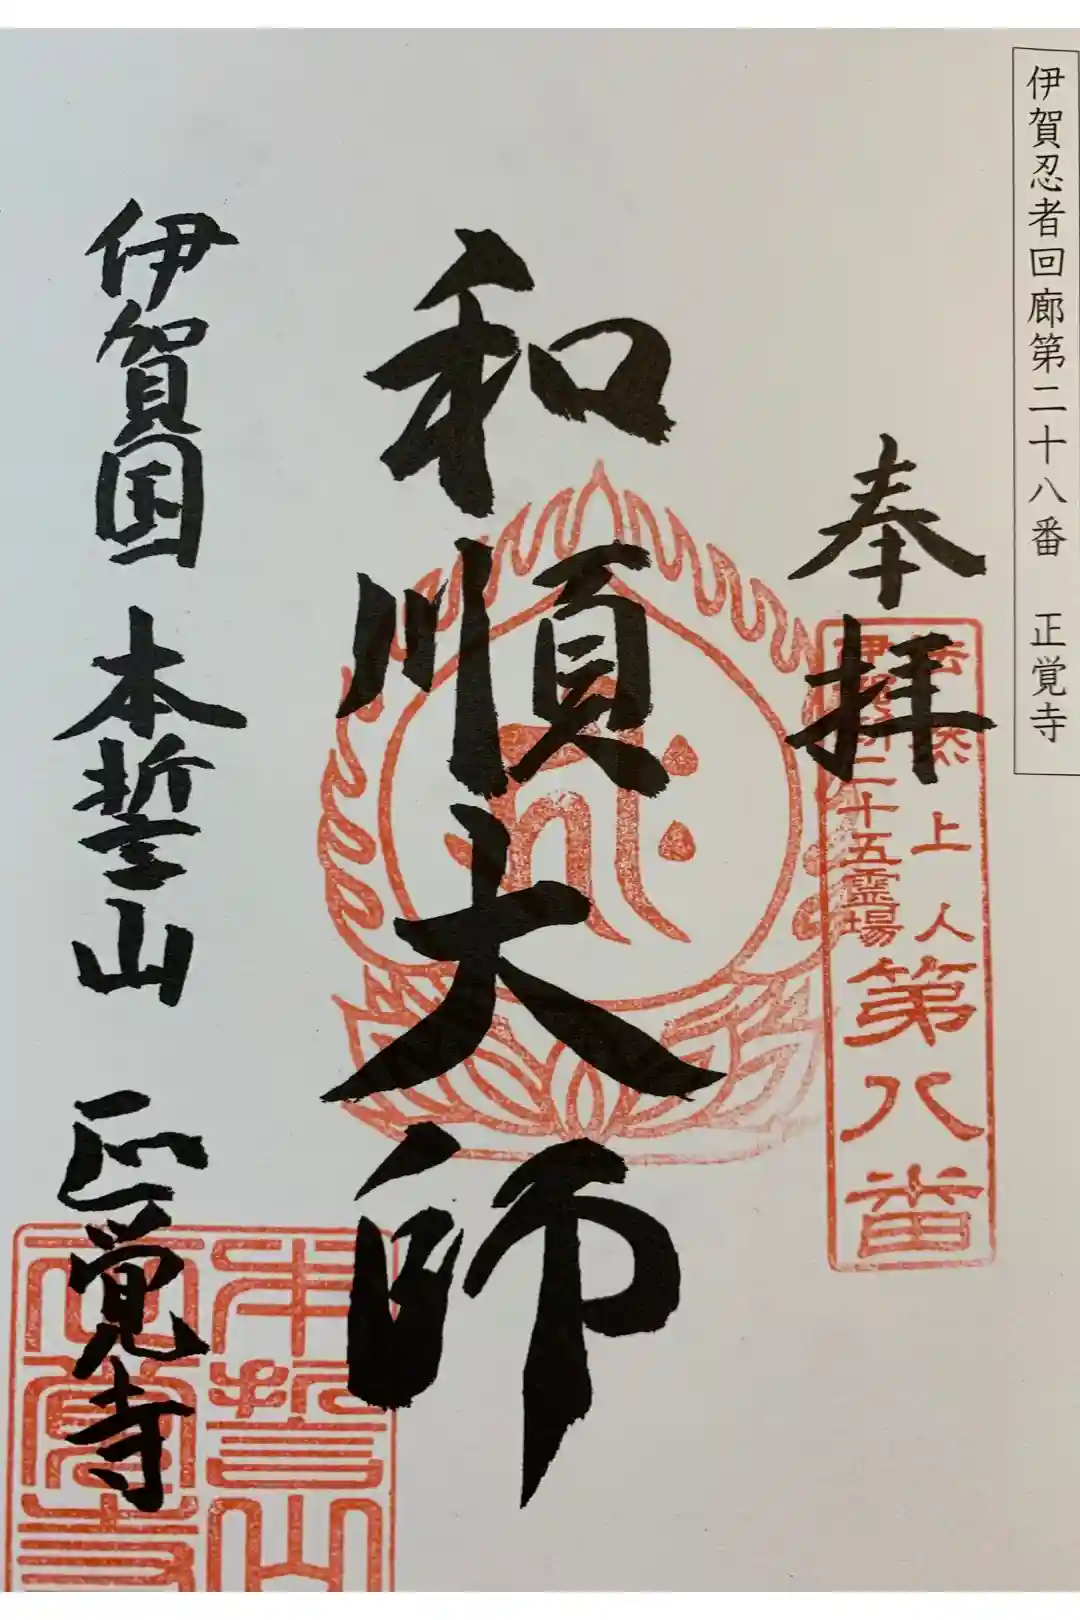 伊賀忍者回廊第二十八番　正覚寺
奉拝
法然上人
伊賀新二十五霊場
第八番
和順大師
伊賀国　本誓山　正覚寺
本誓山
正覚寺